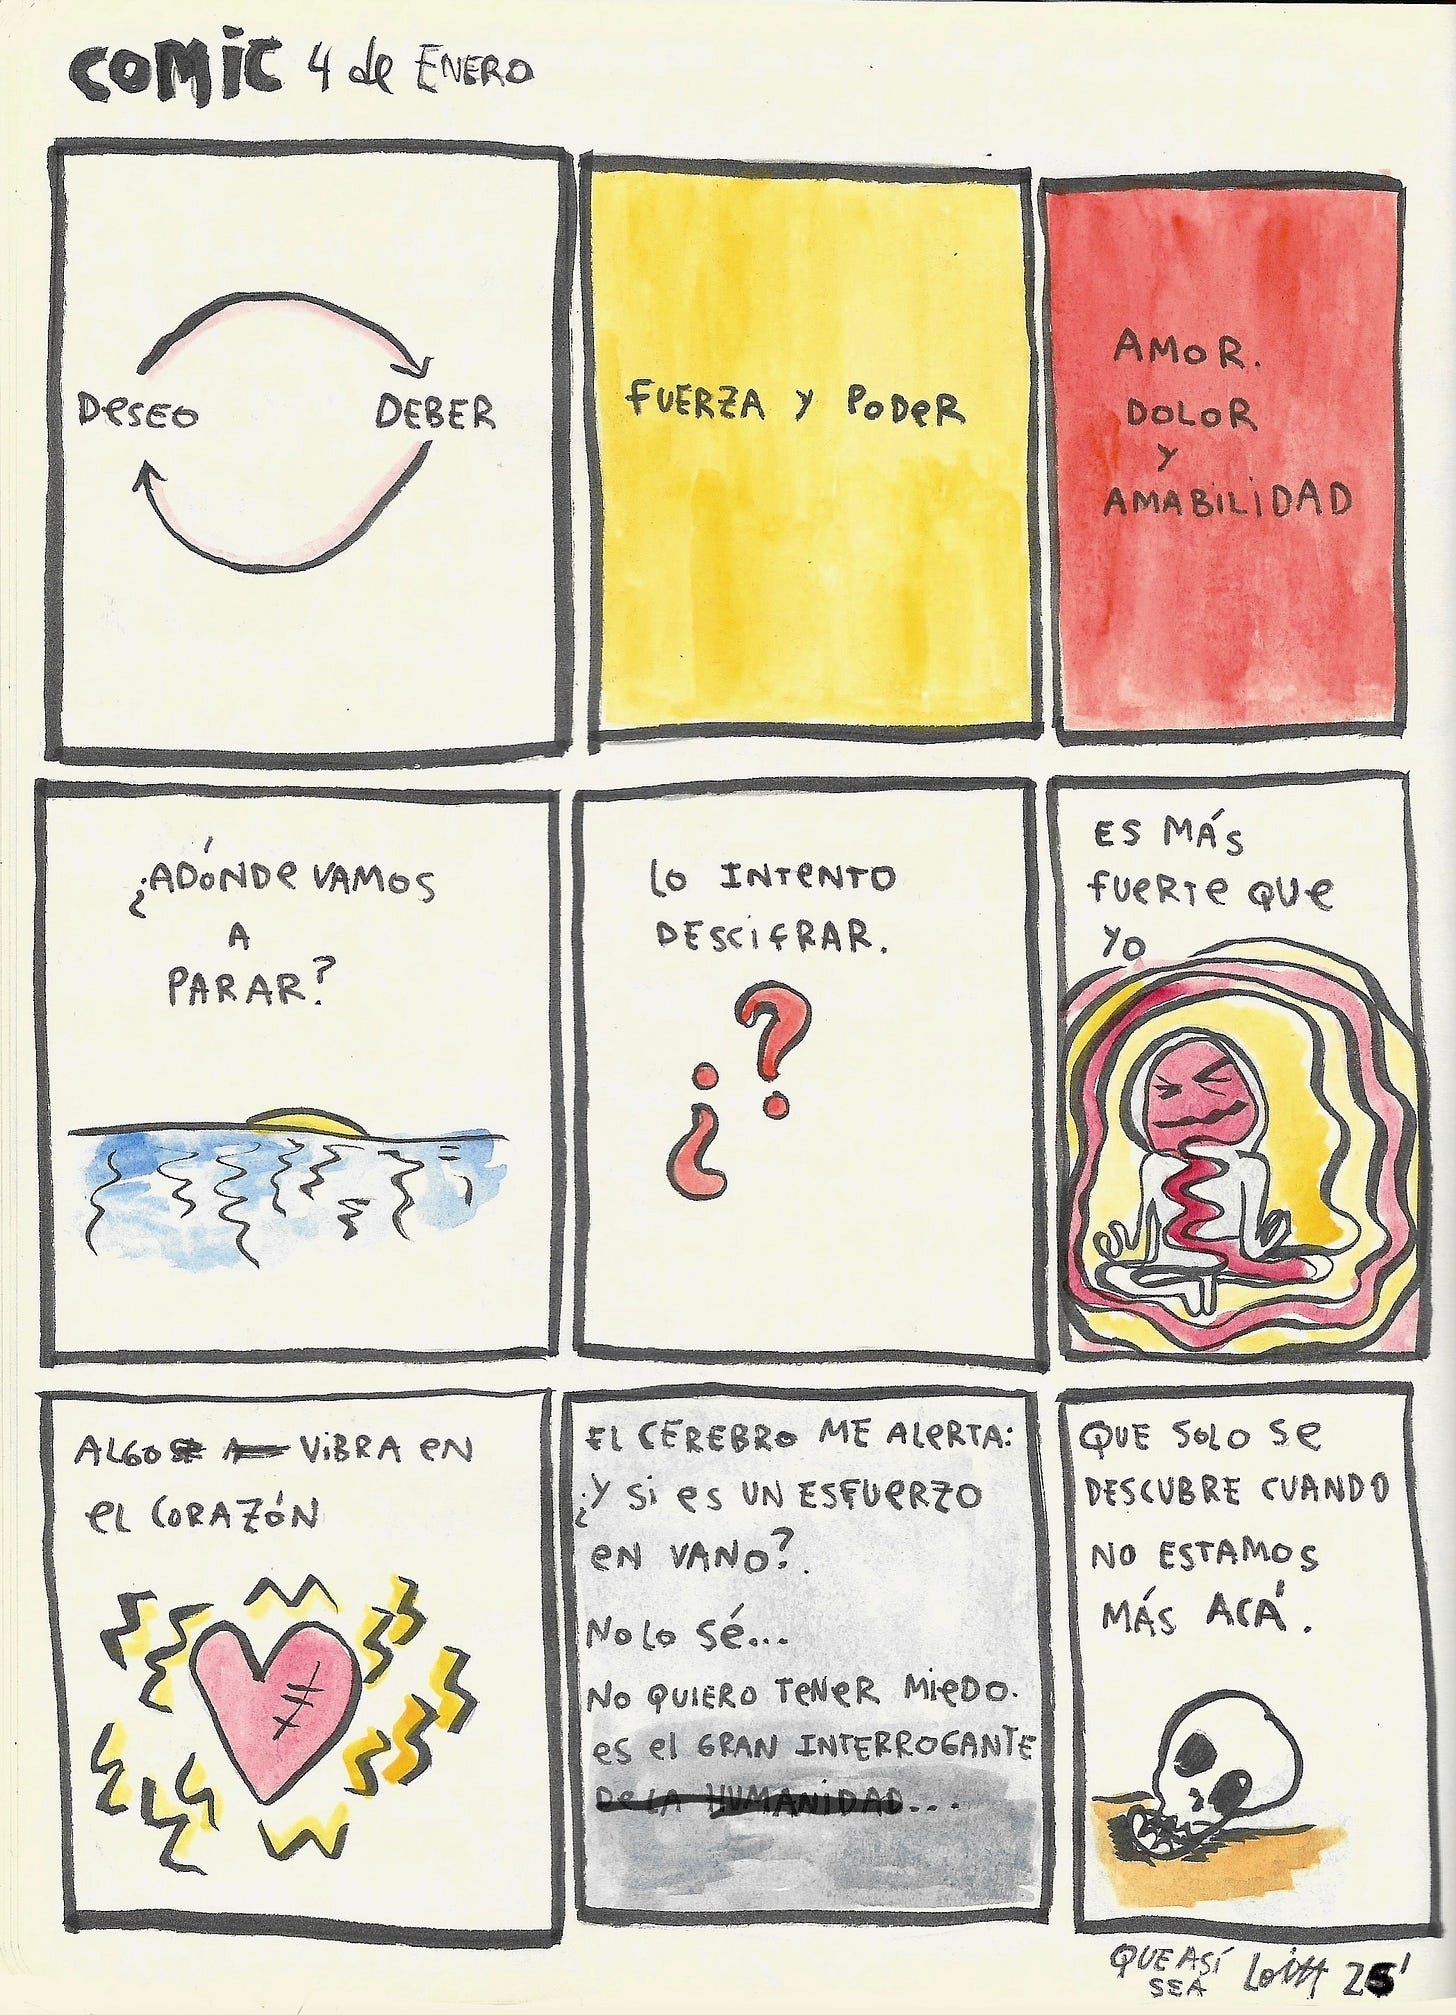 COMIC 4 de ENERO
DESEO
DEBER
FUERZA Y PODER
AMOR.
DOLOR
Y
AMABILIDAD
¿ADÓNDE VAMOS
A
PARAR?
LO INTENTO
DESCIFRAR.
?
¿
ES MÁS
FUERTE QUE
YO
ALGO VIBRA EN
EL CORAZÓN
EL CEREBRO ME ALERTA:
¿Y SI ES UN ESFUERZO
EN VANO?.
NO LO SÉ...
NO QUIERO TENER MIEDO.
ES EL GRAN INTERROGANTE
DE LA HUMANIDAD...
QUE SOLO SE
DESCUBRE CUANDO
NO ESTAMOS
MÁS ACÁ.
QUE ASÍ
SEA